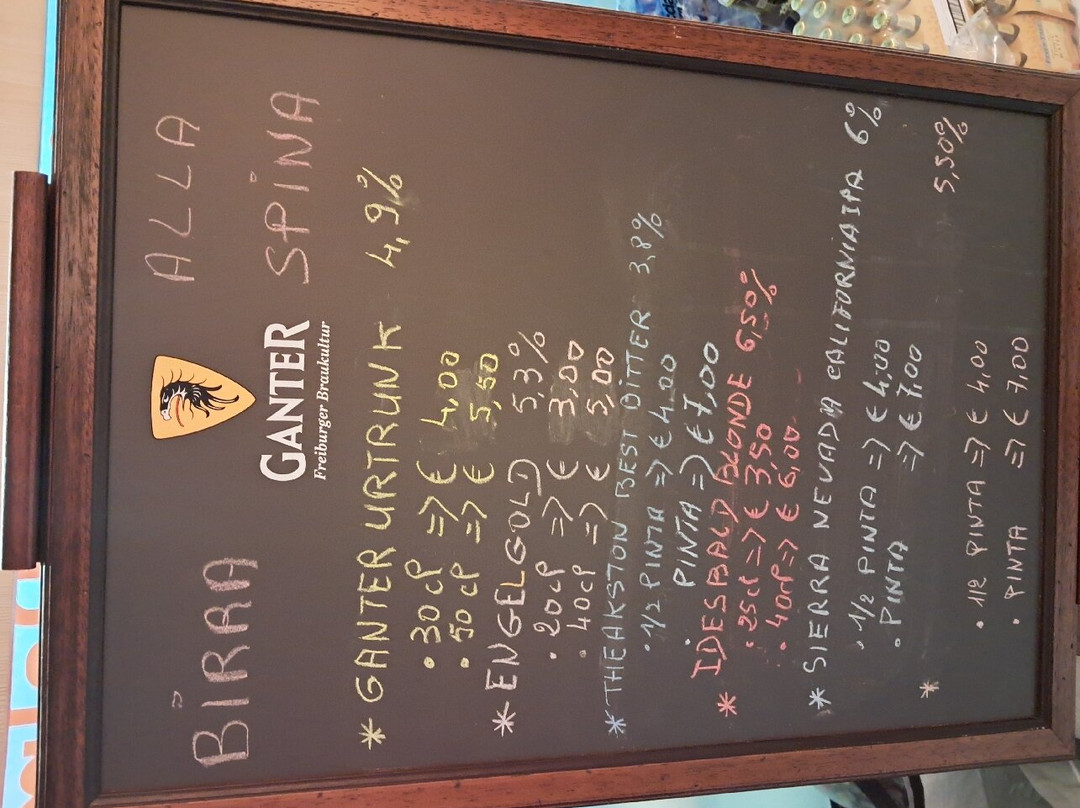 BIRRA ALLA
SPINA
GANTER
Freiburger Braukultur
* GANTER URTRUNK 4,9%
• 30cl => € 4,00
• 50cl => € 5,50
* ENGELGOLD 5,3%
• 20cl => € 3,00
• 40cl => € 5,00
* THEAKSTON BEST BITTER 3,8%
• 1/2 PINTA => € 4,00
• PINTA => € 7,00
* IDESBALD BLONDE 6,50%
• 25cl => € 3,50
• 40cl => € 6,00
* SIERRA NEVADA CALIFORNIA IPA 6%
• 1/2 PINTA => € 4,00
• PINTA => € 7,00
* 5,50%
• 1/2 PINTA => € 4,00
• PINTA => € 7,00